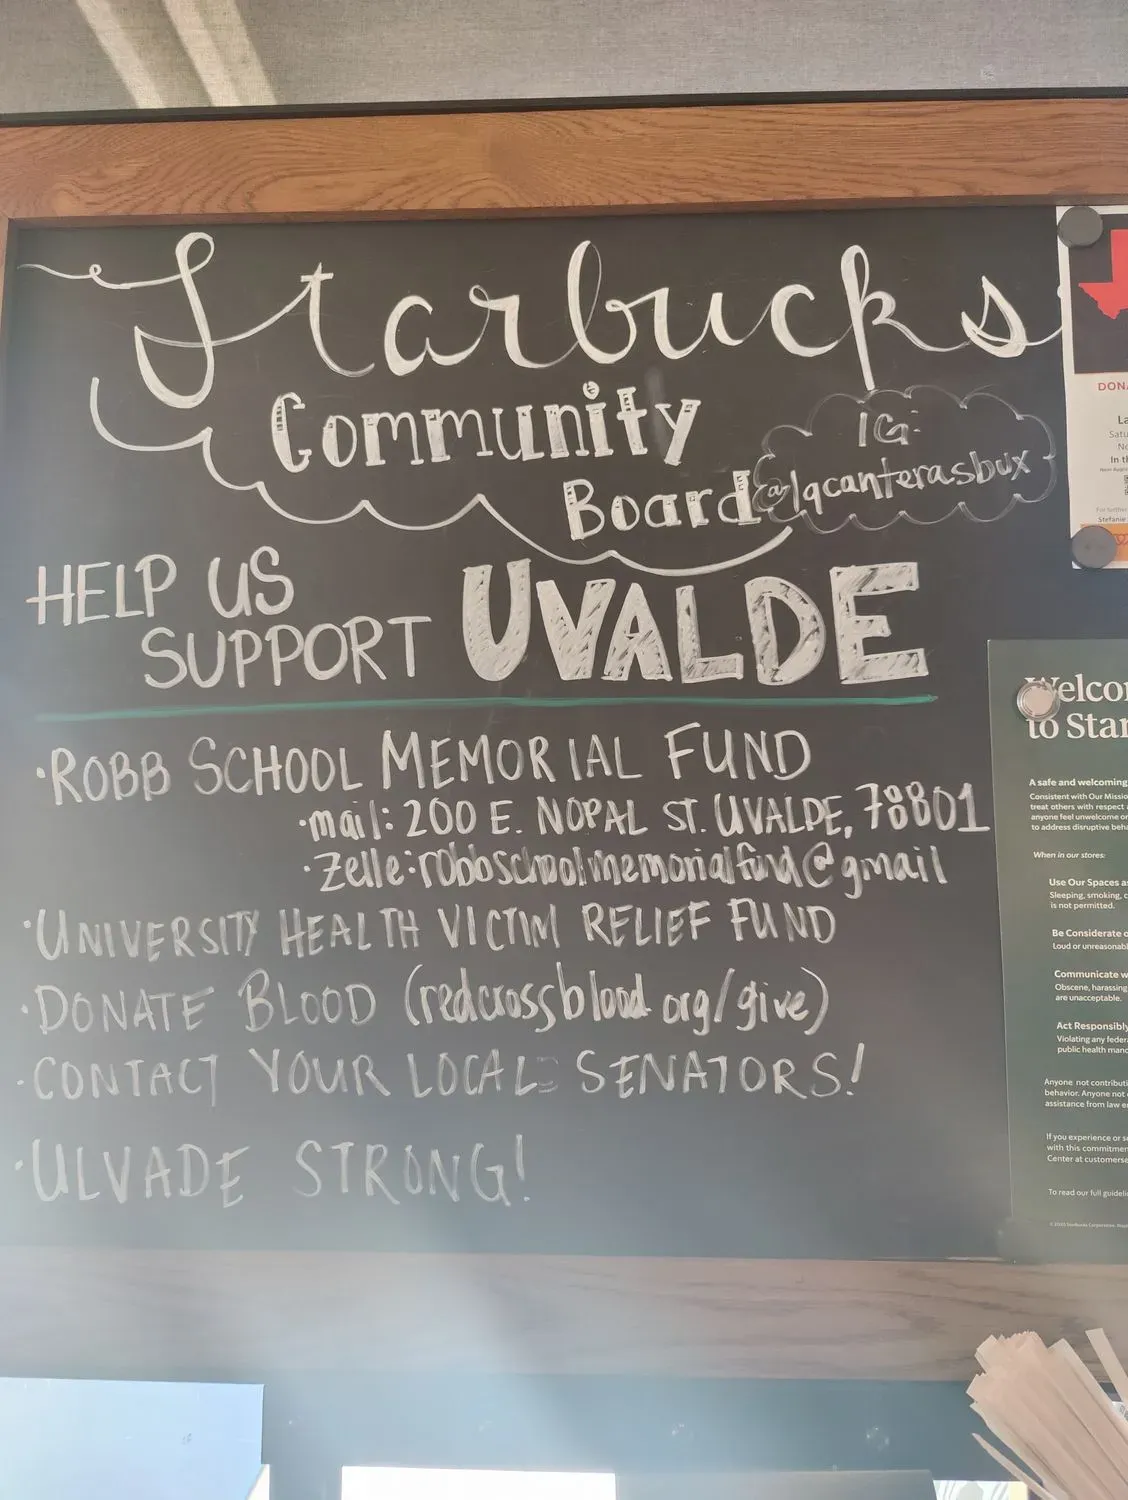 Starbucks
Community
Board
IG:
@lqcanterasbux
HELP US
SUPPORT UVALDE
• ROBB SCHOOL MEMORIAL FUND
• mail: 200 E. NOPAL ST. UVALDE, 78801
• Zelle: robbschoolmemorialfund@gmail
• UNIVERSITY HEALTH VICTIM RELIEF FUND
• DONATE BLOOD (redcrossblood.org/give)
• CONTACT YOUR LOCAL SENATORS!
• ULVADE STRONG!
DON
La
Satu
No
In t
Stefanie
Welco
to Star
A safe and welcoming
Consistent with Our Missio
treat others with respect a
anyone feel unwelcome or
to address disruptive beha
When in our stores:
Use Our Spaces as
Sleeping, smoking, c
is not permitted.
Be Considerate o
Loud or unreasonabl
Communicate w
Obscene, harassing
are unacceptable.
Act Responsibly
Violating any federa
public health mand
Anyone not contributi
behavior. Anyone not
assistance from law e
If you experience or s
with this commitmen
Center at customerse
To read our full guideli